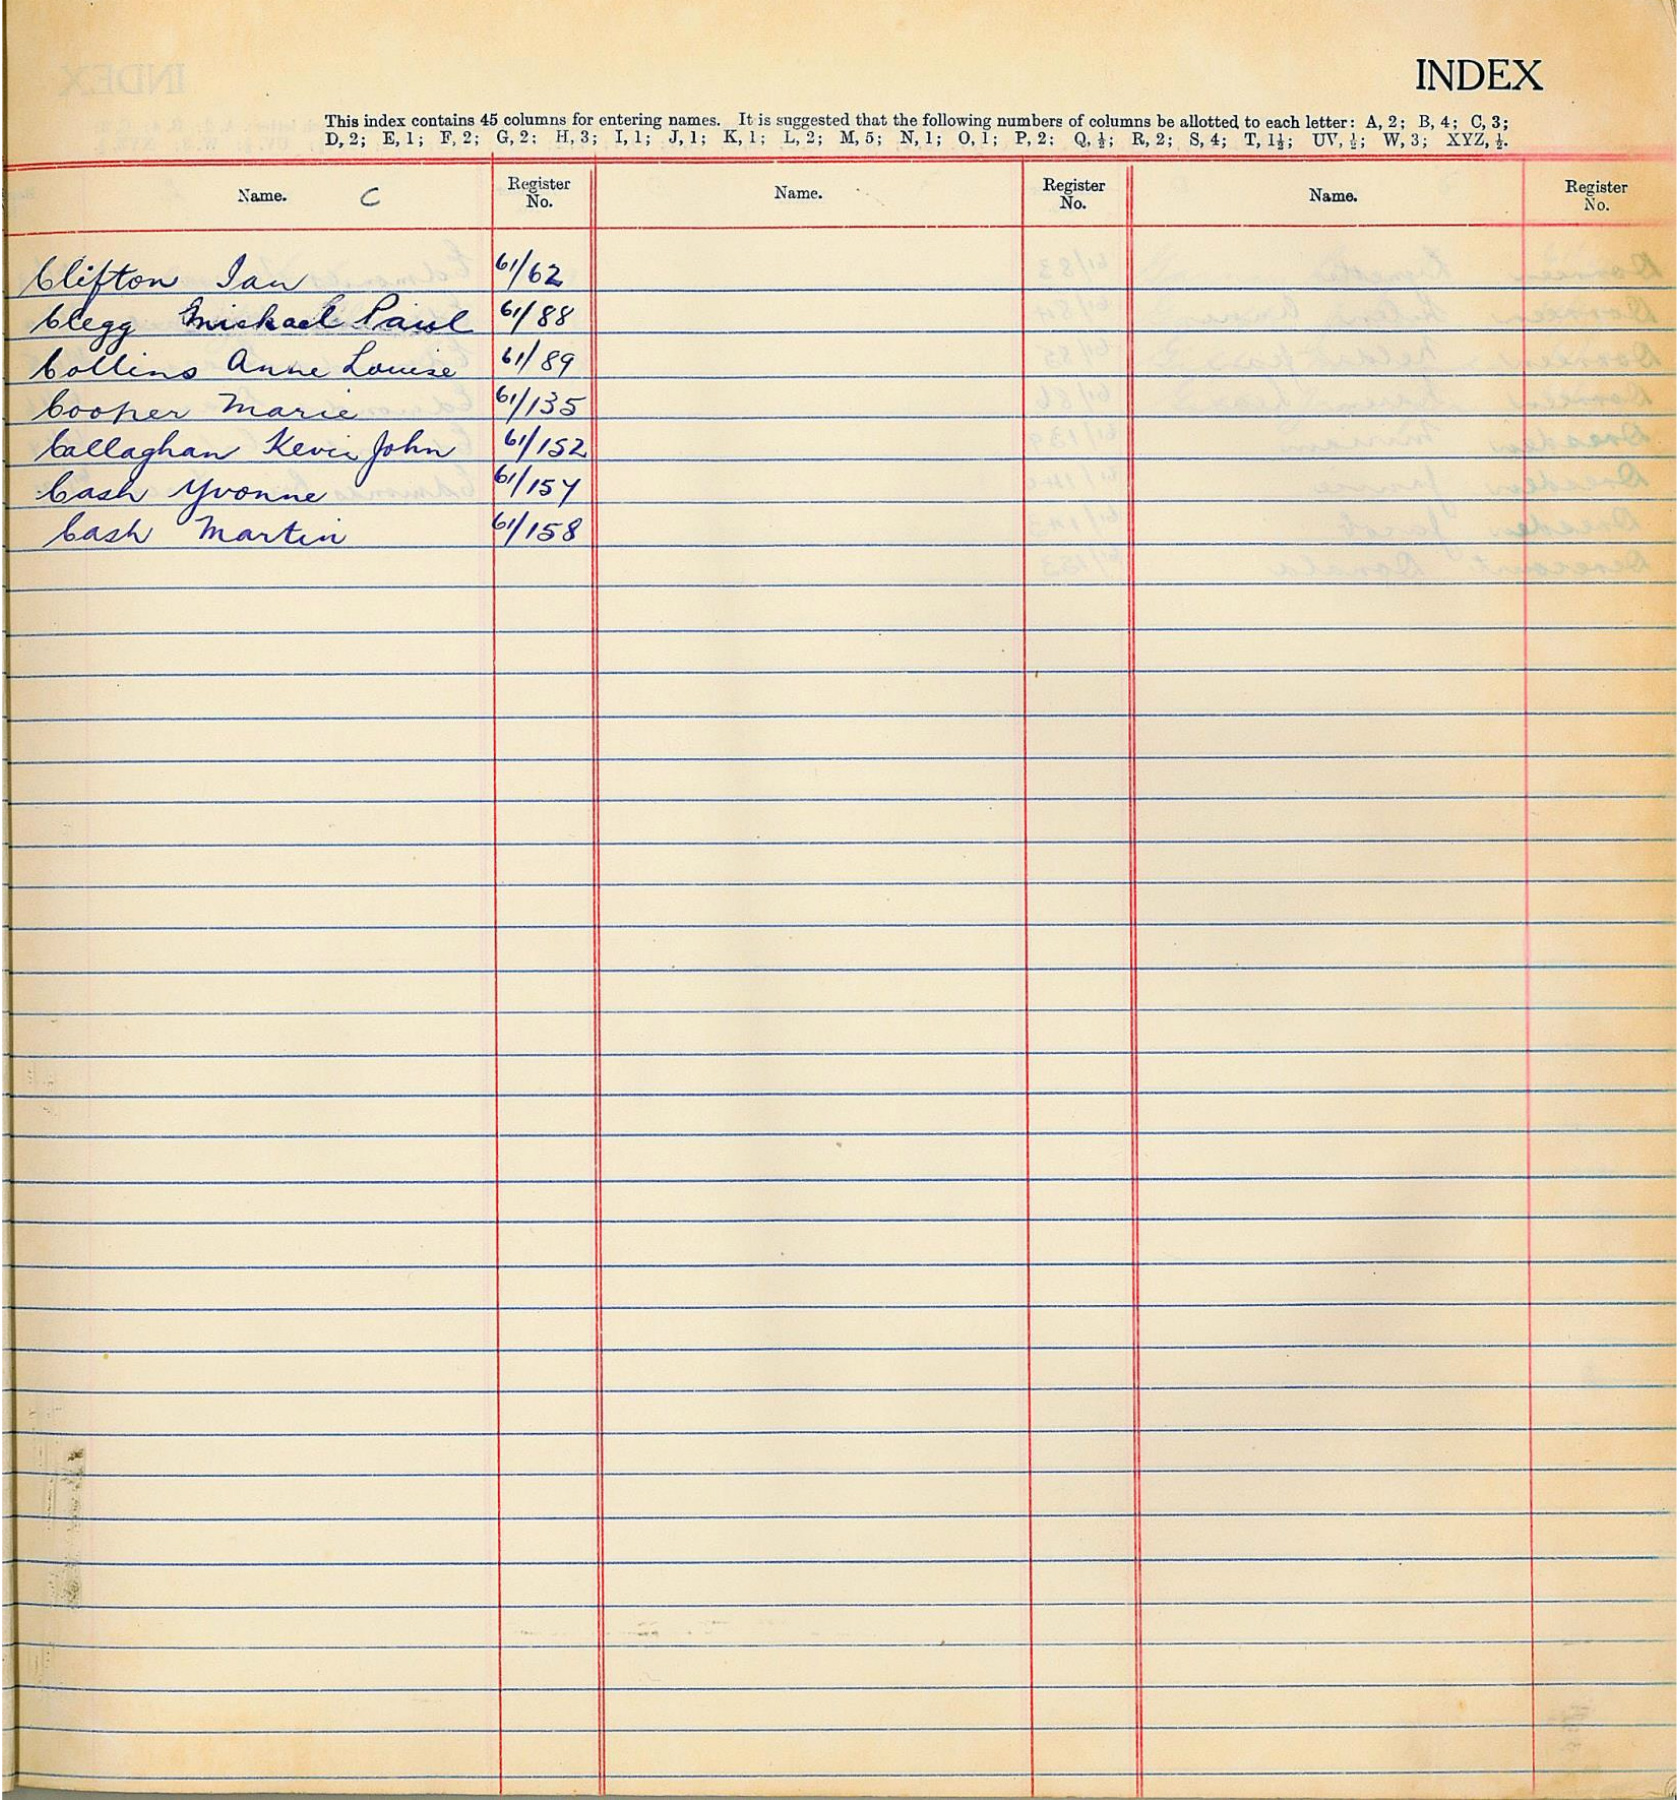 INDEX
This index contains 45 columns for entering names. It is suggested that the following numbers of columns be allotted to each letter: A, 2; B, 4; C, 3;
D, 2; E, 1; F, 2; G, 2; H, 3; I, 1; J, 1; K, 1; L, 2; M, 5; N, 1; O, 1; P, 2; Q, ½; R, 2; S, 4; T, 1½; UV, ½; W, 3; XYZ, ½.
Name. C Register No. Name. Register No. Name. Register No.
Clifton Ian 61/62
Clegg Michael Paul 61/88
Collins Anne Louise 61/89
Cooper Marie 61/135
Callaghan Kevin John 61/152
Cash Yvonne 61/157
Cash Martin 61/158